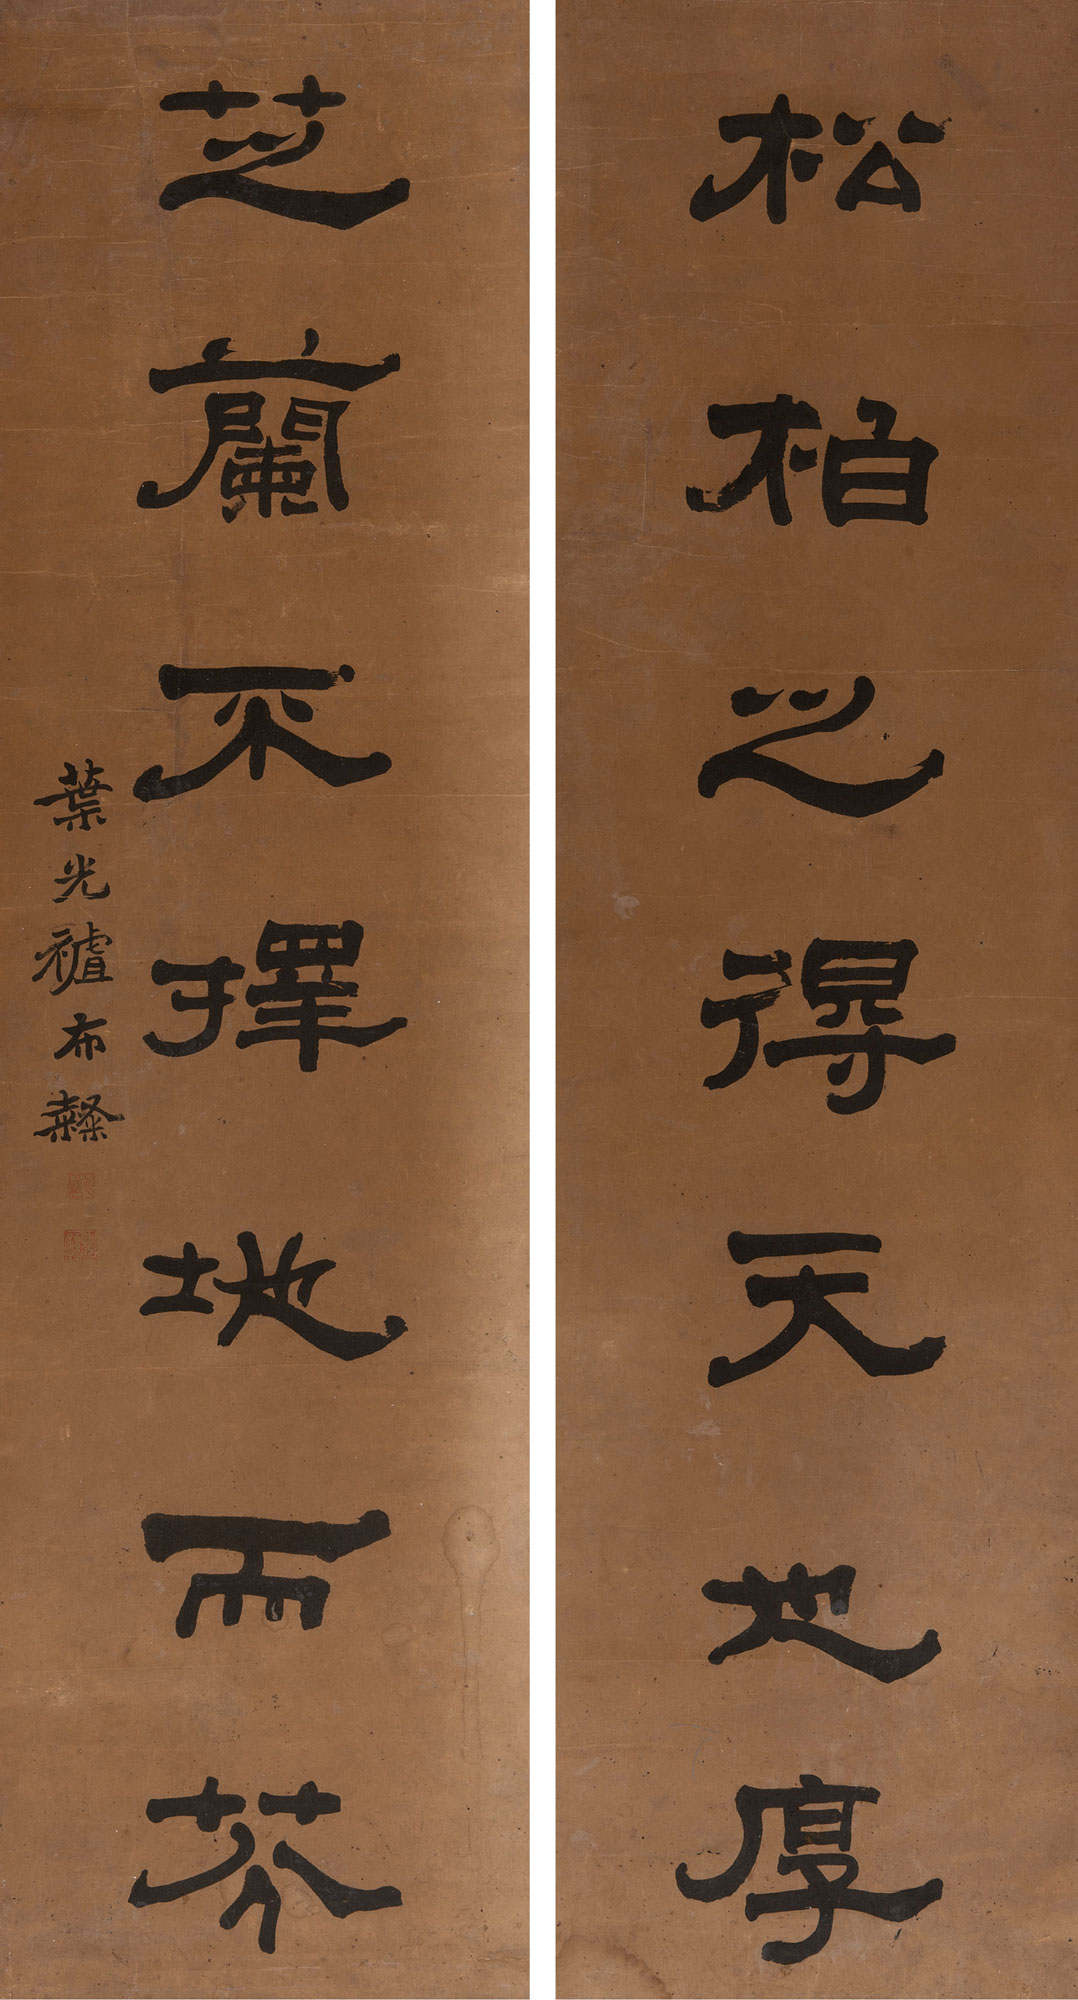 松柏之得天也厚
芝蘭不擇地而芬
葉光布